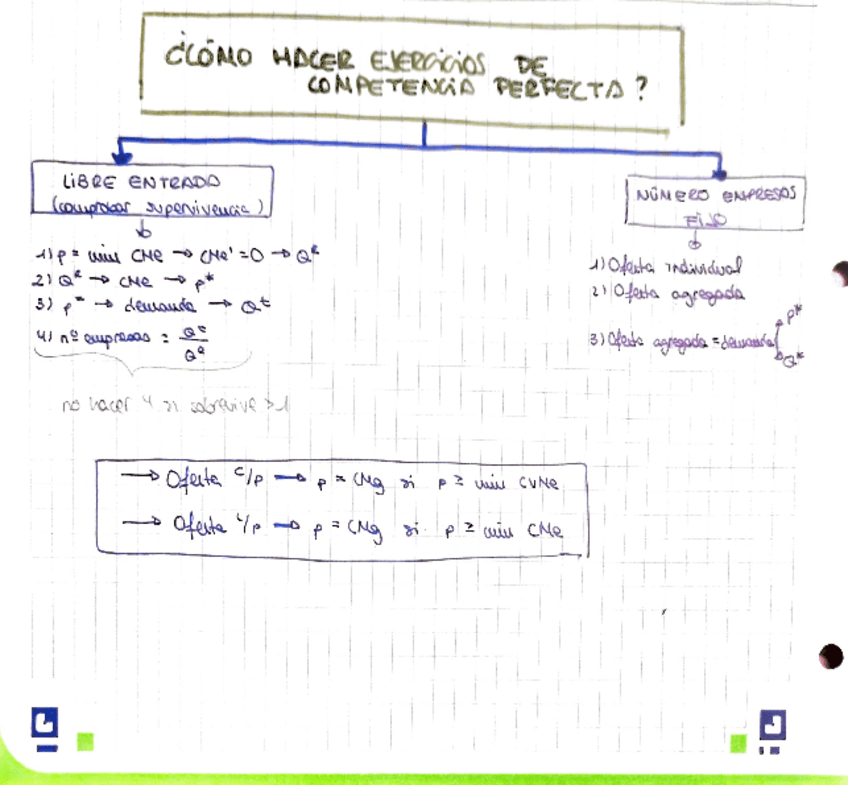 ¿CÓMO HACER EJERCICIOS DE
COMPETENCIA PERFECTA?
LIBRE ENTRADA
(comprobar supervivencia)
1) p = min CMe → CMe' = 0 → Q*
2) Q* → CMe → p*
3) p* → demanda → Qt
4) nº empresas = Qt / Q*
no hacer 4 si sobrevive > 1
NÚMERO EMPRESAS
FIJO
1) Oferta individual
2) Oferta agregada
3) Oferta agregada = demanda
p*
Q*
→ Oferta c/p → p = CMg si p ≥ min CVMe
→ Oferta l/p → p = CMg si p ≥ min CMe